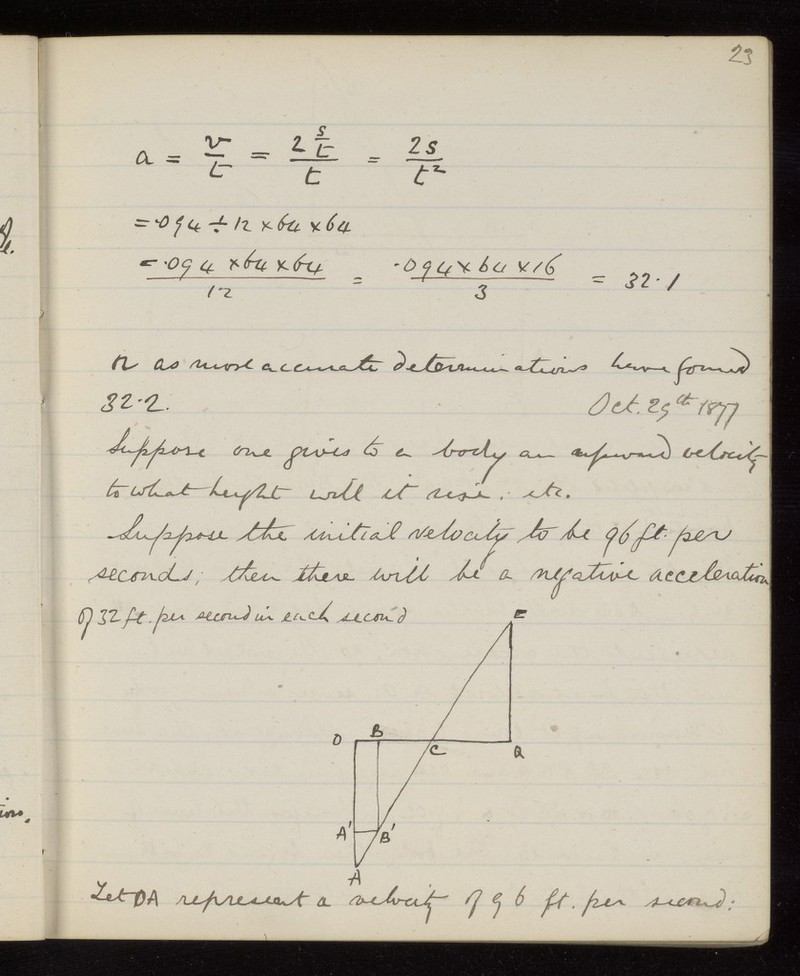 23
a = v/t = 2 s/t / t = 2s/t²
= ·094 ÷ 12 × 64 × 64
= ·094 × 64 × 64 / 12 = ·094 × 64 × 16 / 3 = 32·1
or as most accurate determinations have found
32·2.
Oct. 29th 1877
Suppose one gives to a body an upward velocity
to what height will it rise. etc.
Suppose the initial velocity to be 96 ft. per
seconds; then there will be a negative acceleration
of 32 ft. per second in each second
E
O B C Q
A' B'
A
Let OA represent a velocity of 96 ft. per second: